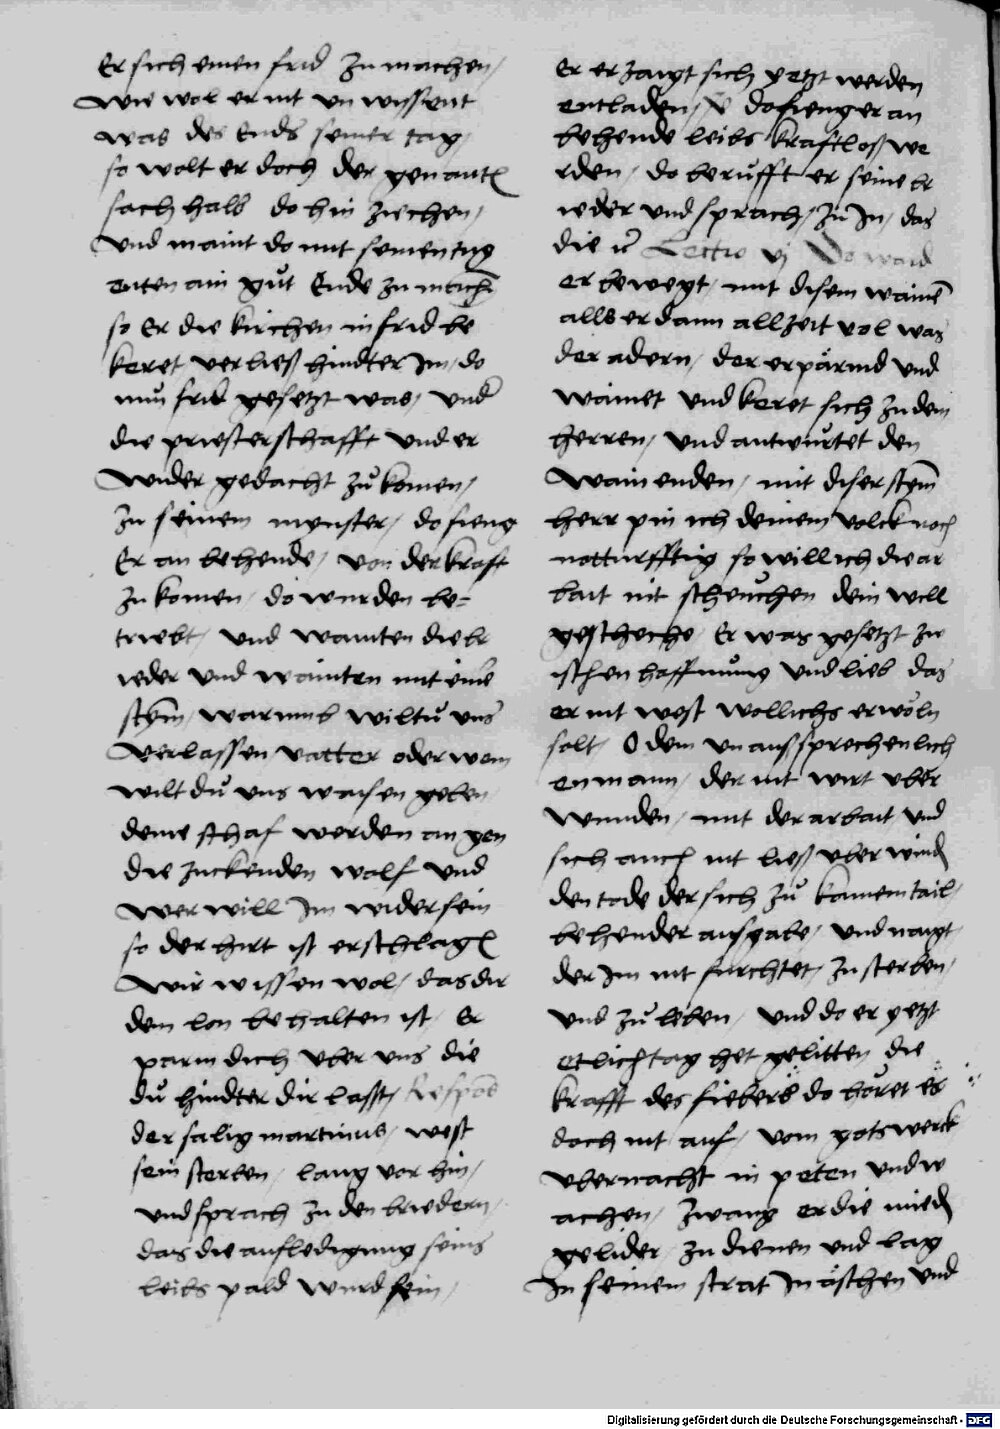 Er sich einen frid zu machen /
Wie wol er nit vnwissent
was des Ends seiner tag /
so wolt er doch der genantn̄
sach halb do hin ziechen /
Vnd maint do mit seinen tug
enten ain gůt Ende zu machn̄
so Er die kirchen in frid be
keret verließ hindter Im / do
nuͦ frid gesetzt was / vnd
die priesterschafft vnd er
Wider gedacht zů komen /
zu seinem mynster / do fieng
Er an behende / von der krafft
zu komen / do wurden be=
triebt / vnd wainten die br
ieder vnd wainten mit einer
stym̄ / warumb wiltu̇ vns
Verlassen vatter oder wem
wilt du̇ vns waisen geben
deine schaf werden an gen
die zuckenden wolf vnd
Wer will Im wider sein
so der hirt ist erschlagn̄
Wir wissen wol / das dir
dem lon behalten ist Er
parm dich vber vns die
du̇ hindter dir lasst / Respons
der salig martinus / west
sein sterben / lang vor hin /
vnd sprach zu den briedern /
das die aufledigung seins
leibs pald wurd sein /
Er erzaigt sich yetzt werden
entladen / v̄ do fieng er an
behende leibs kraftloß we
rden / do berůfft er seine br
ieder vnd sprach / zů In / das
die Lectio vj Do ward
er bewegt / mit disem wainē
alls er dann allzeit vol was
der adern / der erpärmd vnd
wainet vnd keret sich zu dem
herren / vnd antwůrtet den
Wainenden / mit diser stym̄
herr pin ich deinem volck noch
notturfftig so will ich die ar
bait nit scheůchen dein will
gescheche Er was gesetzt zw
ischen haffnuͦng vnd lieb das
er nit west wöllichs erwöln
solt / O dem vnaußsprechenlich
en mann / der nit wirt vber
Wunden / mit der arbait vnd
sich auch nit ließ vber windn̄
den tode der sich zů kainem tail /
behender aufgabe / vnd naigt
der Im nit furchtet / zu sterben /
vnd zů leben / vnd do er yetzt
etlich tag het gelitten die
krafft des fiebers do höret er
doch nit auf / vom gots werck
vbernacht in peten vnd w
achen / zwang er die miedn̄
gelider zu dienen vnd lag
In seinem strat In äschen vnd
Digitalisierung gefördert durch die Deutsche Forschungsgemeinschaft - DFG